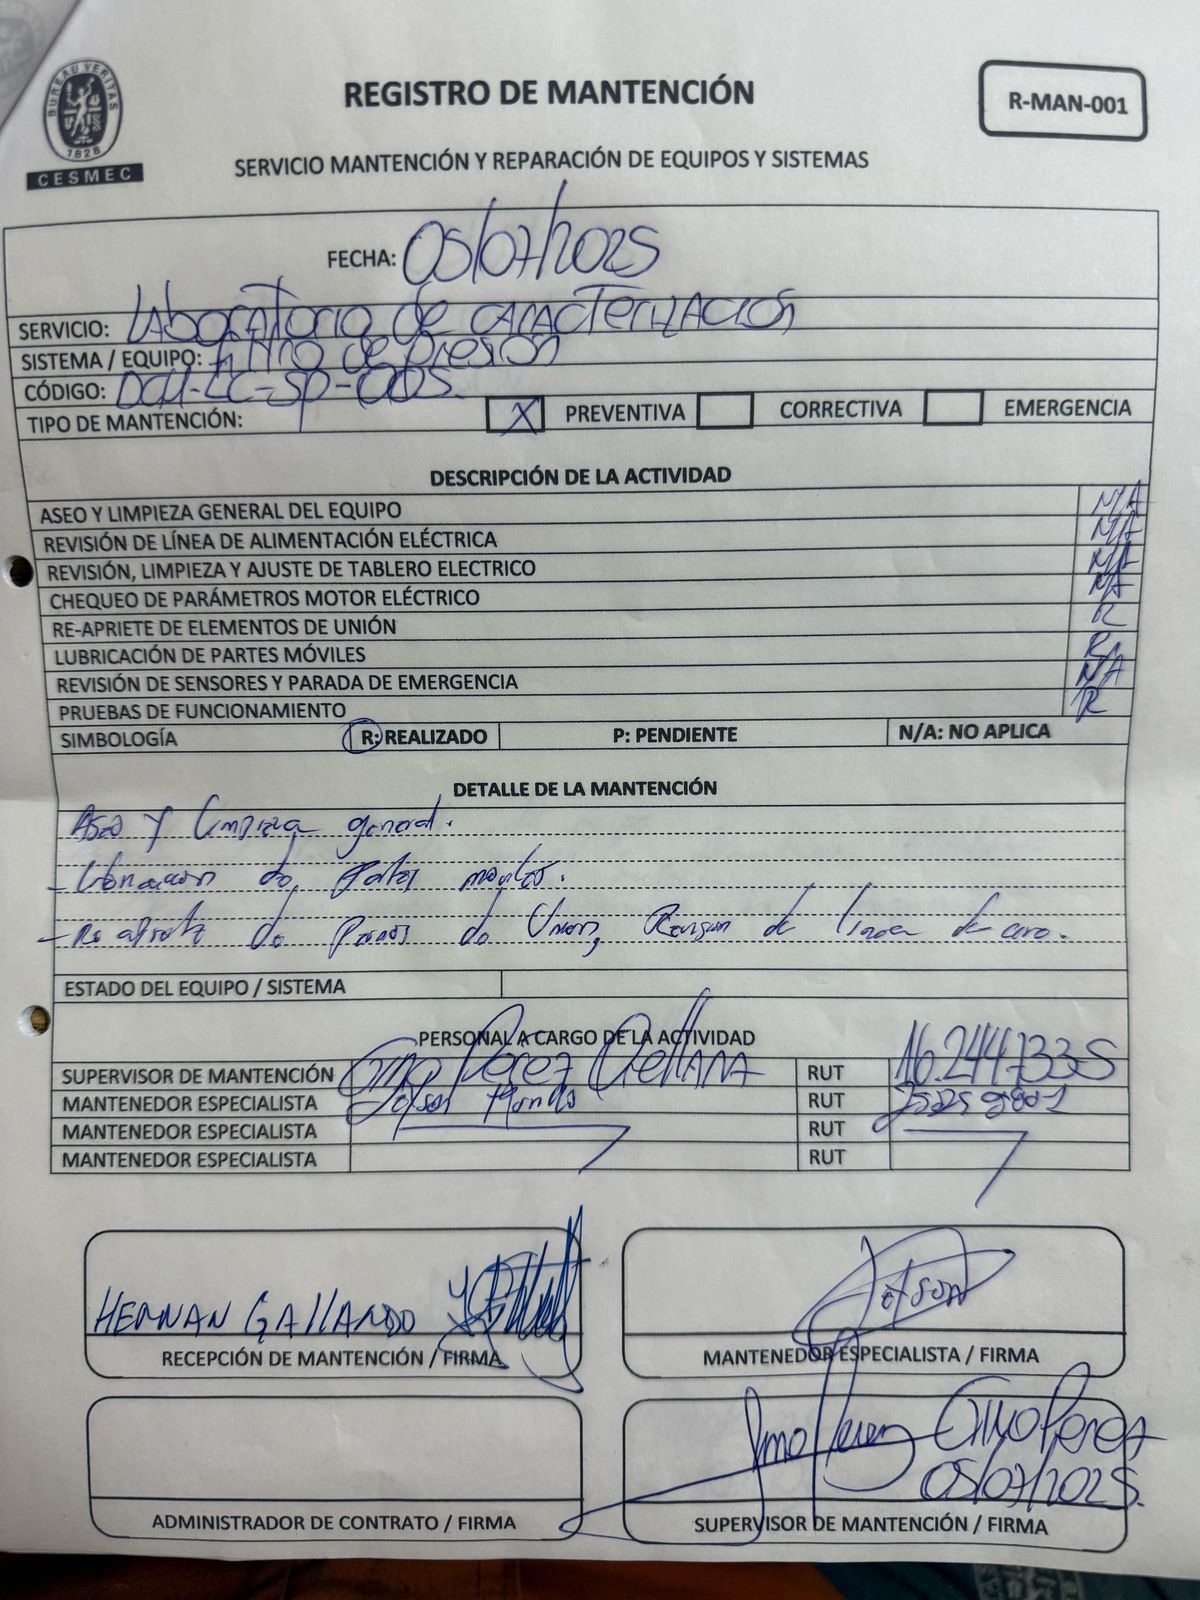 BUREAU VERITAS
1828
CESMEC
REGISTRO DE MANTENCIÓN
R-MAN-001
SERVICIO MANTENCIÓN Y REPARACIÓN DE EQUIPOS Y SISTEMAS
FECHA: 05/07/2025
SERVICIO: Laboratorio de caracterización
SISTEMA / EQUIPO: filtro de presión
CÓDIGO: DCH-LC-SP-005.
TIPO DE MANTENCIÓN: X PREVENTIVA CORRECTIVA EMERGENCIA
DESCRIPCIÓN DE LA ACTIVIDAD
ASEO Y LIMPIEZA GENERAL DEL EQUIPO N/A
REVISIÓN DE LÍNEA DE ALIMENTACIÓN ELÉCTRICA N/A
REVISIÓN, LIMPIEZA Y AJUSTE DE TABLERO ELECTRICO N/A
CHEQUEO DE PARÁMETROS MOTOR ELÉCTRICO N/A
RE-APRIETE DE ELEMENTOS DE UNIÓN R
LUBRICACIÓN DE PARTES MÓVILES R
REVISIÓN DE SENSORES Y PARADA DE EMERGENCIA N/A
PRUEBAS DE FUNCIONAMIENTO R
SIMBOLOGÍA R: REALIZADO P: PENDIENTE N/A: NO APLICA
DETALLE DE LA MANTENCIÓN
Aseo y limpieza general.
- Lubricacion de partes moviles.
- Re apriete de de Union, Revision de linea de
ESTADO DEL EQUIPO / SISTEMA
PERSONAL A CARGO DE LA ACTIVIDAD
SUPERVISOR DE MANTENCIÓN Gino Perez Orellana RUT 16.244.733-5
MANTENEDOR ESPECIALISTA RUT
MANTENEDOR ESPECIALISTA RUT
MANTENEDOR ESPECIALISTA RUT
HERNAN GALLARDO
RECEPCIÓN DE MANTENCIÓN / FIRMA
MANTENEDOR ESPECIALISTA / FIRMA
Gino Perez
05/07/2025.
ADMINISTRADOR DE CONTRATO / FIRMA
SUPERVISOR DE MANTENCIÓN / FIRMA